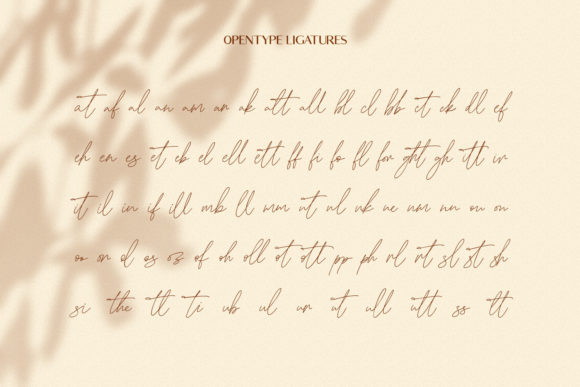 OPENTYPE LIGATURES
at af al an am ar ak att all bl cl bb ct ck dl ef
eh en es et eb el ell ett ff fi fo fl for ght gh itt ir
it il in if ill mb ll mm nt nl nk ne nm nn ou on
oo or ol os oz of oh oll ot ott pp ph rl rt sl st sh
si the tt ti ub ul ur ut ull utt ss lt